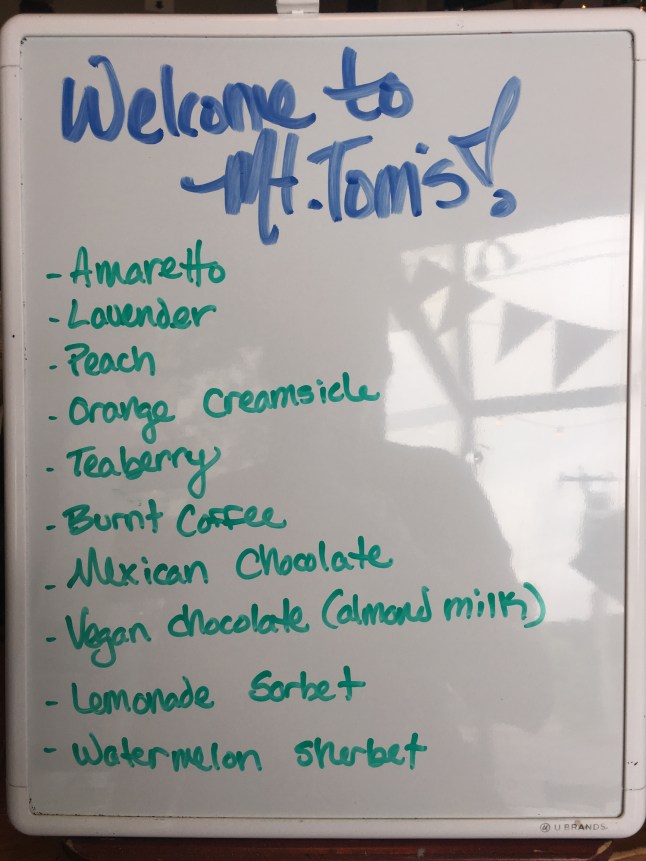 Welcome to
Mt. Tom's!
- Amaretto
- Lavender
- Peach
- Orange Creamsicle
- Teaberry
- Burnt Coffee
- Mexican Chocolate
- Vegan chocolate (almond milk)
- Lemonade Sorbet
- Watermelon sherbet
U BRANDS